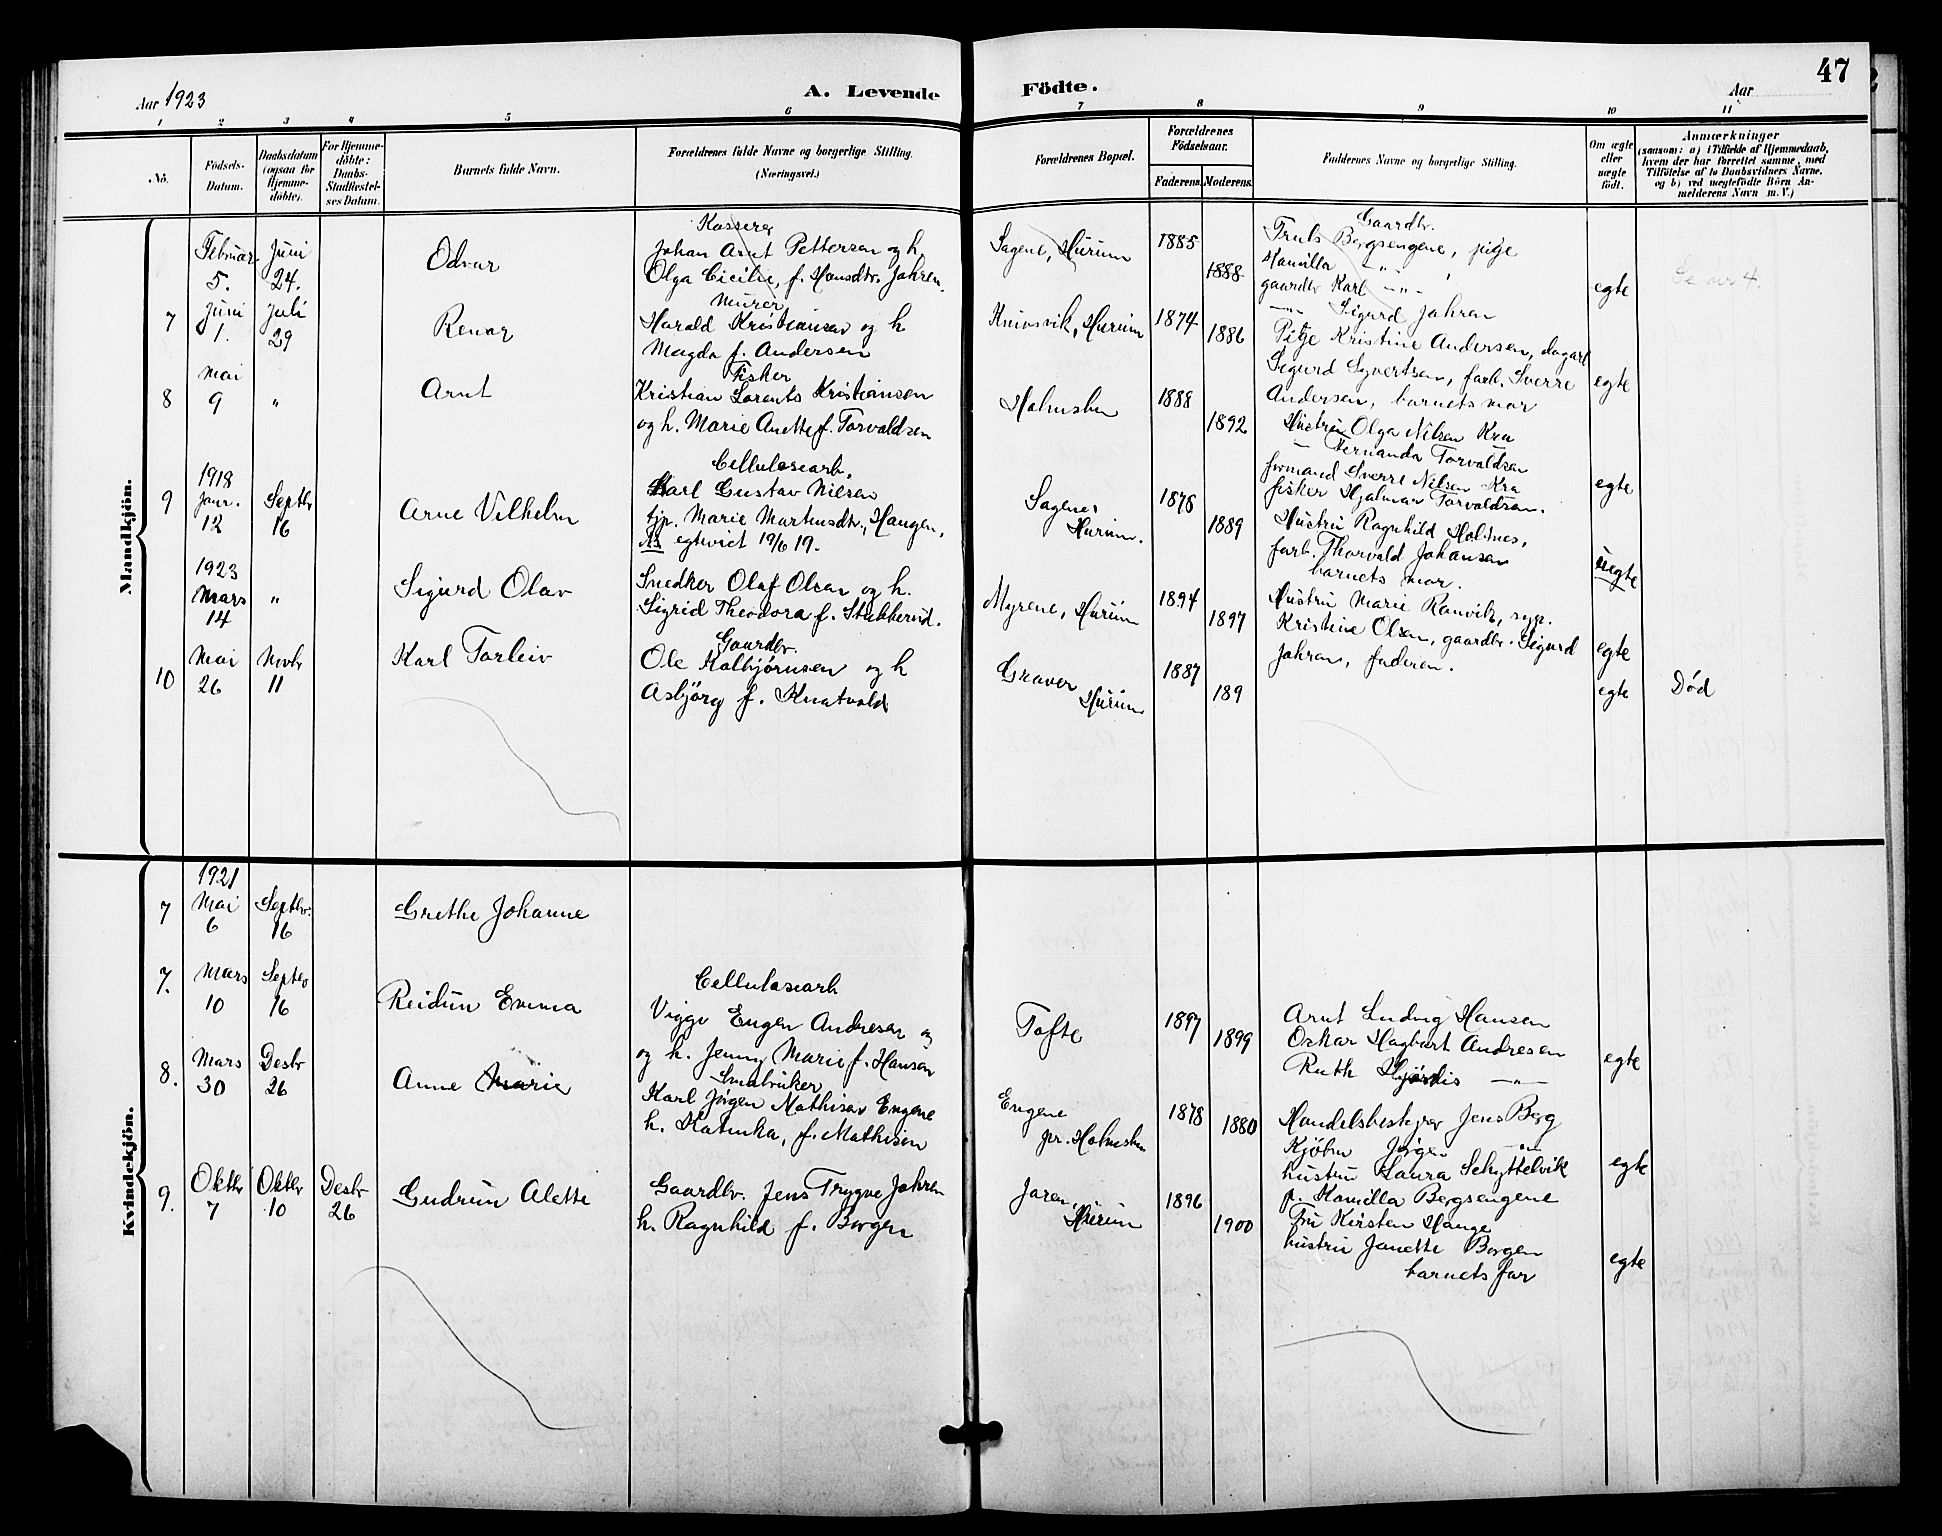 Aar 1923
A. Levende
Födte.
Aar
47
1 2 3 4 5 6 7 8 9 10 11
No.
Födsels-
Datum.
Daabsdatum
(ogsaa for
Hjemme-
döbte).
For Hjemme-
döbte:
Daabs-
Stadfæstel-
ses Datum.
Barnets fulde Navn.
Forældrenes fulde Navne og borgerlige Stilling.
(Næringsvei.)
Forældrenes Bopæl.
Forældrenes
Födselsaar.
Faderens Moderens.
Faddernes Navne og borgerlige Stilling.
Om ægte
eller
uægte
födt.
Anmærkninger
(saasom: a) i Tilfælde af Hjemmedaab,
hvem der har forrettet samme, med
Tilföielse af to Daabsvidners Navne,
og b) ved uægtefödte Börn An-
melderens Navn m. V.)
Mandkjön.
Februar
5.
Juni
24.
Odvar
Kasserer
Johan Arnt Pettersen og h.
Olga Cicilie, f. Hansdtr. Jahren.
Sagene, Hurum
1885
1888
Gaardbr.
Truls Bergsengene, pige
Hamilla — " —
gaardbr Karl — " —
— " — Sigurd Jahren
egte
Se nr 4.
7
Juni
1.
Juli
29
Renar
Murer
Harald Kristiansen og h
Magda f. Andersen
Knivsvik, Hurum
1874
1886
Pige Kristine Andersen, dagarb
Sigurd Syvertsen, farb. Sverre
Andersen, barnets mor
egte
8
Mai
9
"
Arnt
Fisker
Kristian Lorents Kristiansen
og h. Marie Anette f. Torvaldsen
Holmsbu
1888
1892
Hustru Olga Nilsen Kra
— Fernanda Torvaldsen
formand Sverre Nilsen Kra
fisker Hjalmar Torvaldsen.
egte
9
1918
Janr.
12
Septbr
16
Arne Vilhelm
Cellulosearb.
Karl Gustav Nilsen
tjp. Marie Martinsdtr. Haugen,
Ns egteviet 19/6 19.
Sagene,
Hurum.
1876
1889
Hustru Ragnhild Holtnes,
farb. Thorvald Johansen
barnets mor.
uegte
1923
Mars
14
"
Sigurd Olav
Snedker Olaf Olsen og h.
Sigrid Theodora f. Stubberud.
Myrene, Hurum
1894
1897
Hustru Marie Ramvik, syp.
Kristine Olsen, gaardbr. Sigurd
Jahren, faderen.
egte
10
Mai
26
Novbr
11
Karl Torleiv
Gaardbr.
Ole Kolbjørnsen og h
Asbjörg f. Knatvold
Graver
Hurum
1887
189
egte
Død
Kvindekjön.
7
1921
Mai
6
Septbr.
16
Grethe Johanne
7.
Mars
10
Septbr
16
Reidun Emma
Cellulosearb
Viggo Eugen Andresen og
og h. Jenny Marie f. Hansen
Tofte
1897
1899
Arnt Ludvig Hansen
Oskar Hagbart Andresen
Ruth Hjørdis — " —
egte
8.
Mars
30
Desbr
26
Anne Marie
Smabruker
Karl Jörgen Mathisen Engene
h. Katinka, f. Mathisen
Engene
pr. Holmsbu
1878
1880
Handelsbestyrer Jens Berg
Kjøbm Jörgen — " —
hustru Laura Schyttelvik
egte
9.
Oktbr
7
Oktbr
10
Desbr
26
Gudrun Alette
Gaardbr. Jens Trygve Jahren
h. Ragnhild f. Borgen
Jaren,
Hurum
1896
1900
p. Hamilla Bergsengene
Fru Kirsten Hauge
hustru Janette Borgen
barnets far
egte